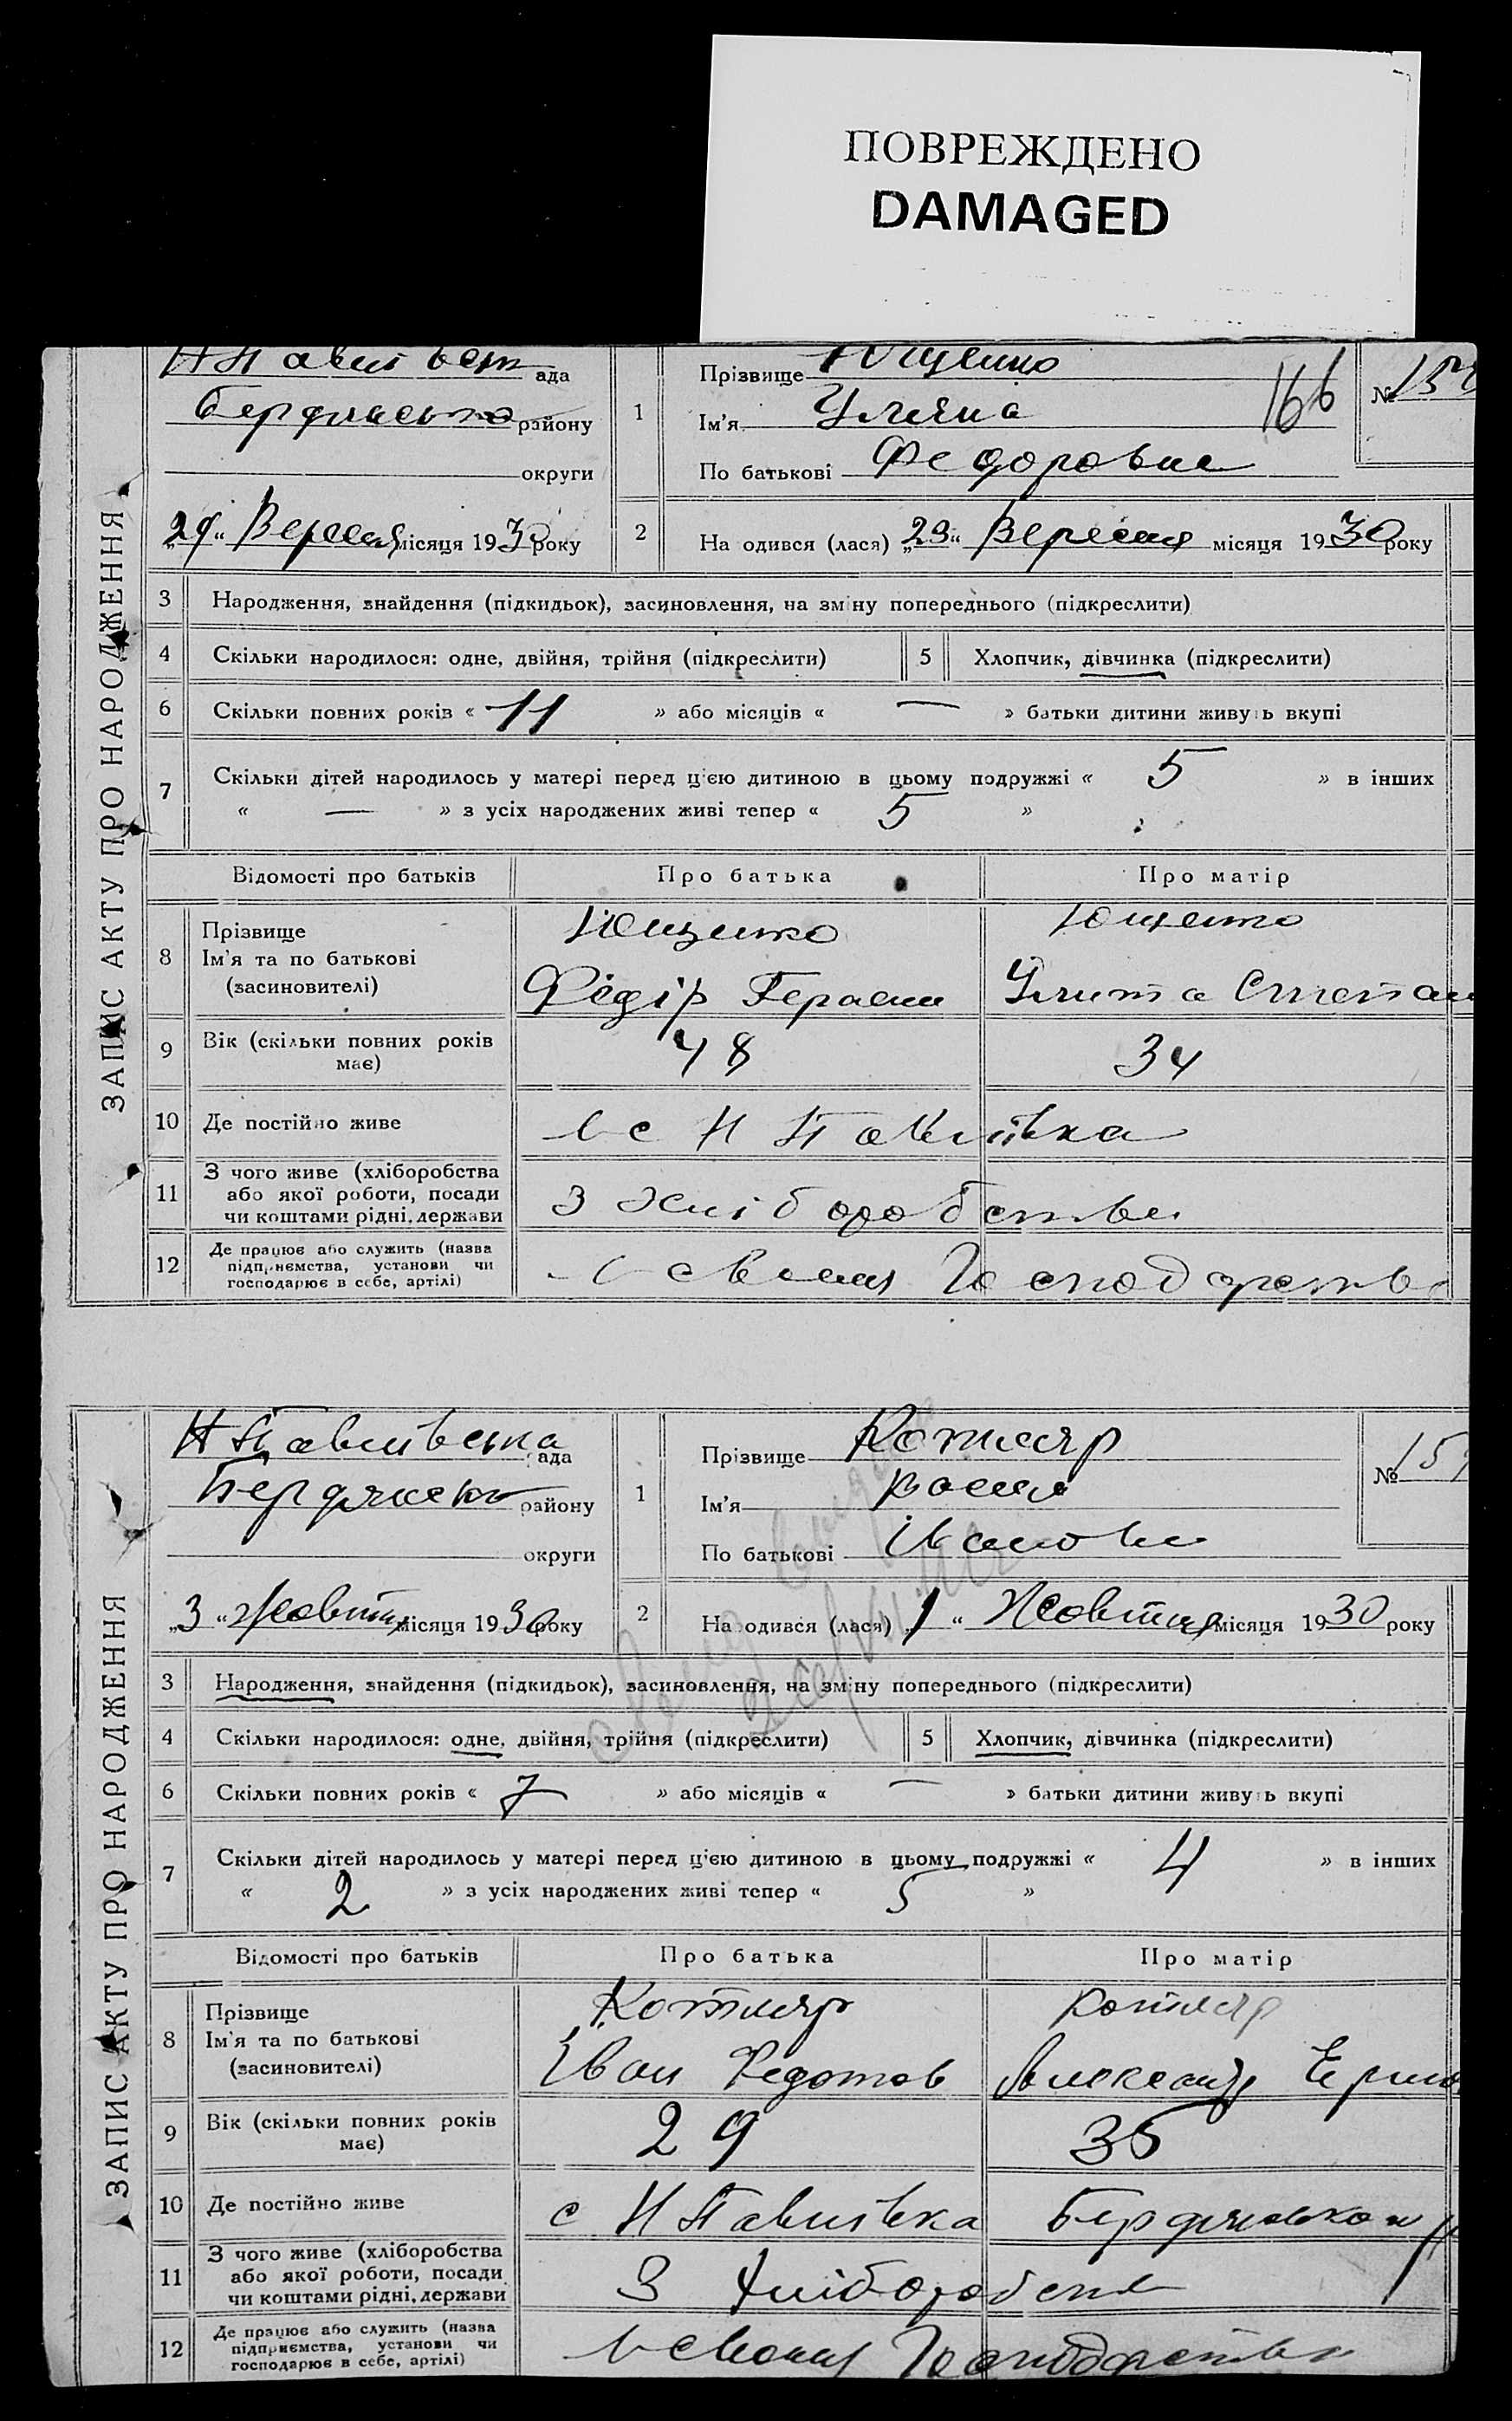 ПОВРЕЖДЕНО
DAMAGED
ЗАПИС АКТУ ПРО НАРОДЖЕННЯ
ада
району
округи
1
Прізвище Ющенко
Ім'я Уляна
По батькові Федоровна
166
№ 15
„29“ Вересня місяця 1930 року
2
На одився (лася) „29“ Вересня місяця 1930 року
3 Народження, знайдення (підкидьок), засиновлення, на зміну попереднього (підкреслити)
4 Скільки народилося: одне, двійня, трійня (підкреслити)
5 Хлопчик, дівчинка (підкреслити)
6 Скільки повних років « 11 » або місяців « — » батьки дитини живуть вкупі
7 Скільки дітей народилось у матері перед цією дитиною в цьому подружжі « 5 » в інших
« — » з усіх народжених живі тепер « 5 »
Відомості про батьків
Про батька
Про матір
8 Прізвище
Ім'я та по батькові
(засиновителі)
Ющенко
Федір Герасим
Ющенко
Степан
9 Вік (скільки повних років
має)
48
34
10 Де постійно живе
в с Н Павлівка
11 З чого живе (хліборобства
або якої роботи, посади
чи коштами рідні, держави
З Хліборобства
12 Де працює або служить (назва
підприємства, установи чи
господарює в себе, артілі)
в своім Господарстві
ЗАПИС АКТУ ПРО НАРОДЖЕННЯ
Н Павлівська ада
Бердянськ району
округи
1
Прізвище Котляр
Ім'я
По батькові Іванови
№ 15
„3“ Жовтня місяця 1930 року
2
На одився (лася) „1“ Жовтня місяця 1930 року
3 Народження, знайдення (підкидьок), засиновлення, на зміну попереднього (підкреслити)
4 Скільки народилося: одне, двійня, трійня (підкреслити)
5 Хлопчик, дівчинка (підкреслити)
6 Скільки повних років « 7 » або місяців « — » батьки дитини живуть вкупі
7 Скільки дітей народилось у матері перед цією дитиною в цьому подружжі « 4 » в інших
« 2 » з усіх народжених живі тепер « 5 »
Відомості про батьків
Про батька
Про матір
8 Прізвище
Ім'я та по батькові
(засиновителі)
Котляр
Іван Федотов
Котляр
Александ Ермо
9 Вік (скільки повних років
має)
29
35
10 Де постійно живе
с Н Павлівка Бердянського
11 З чого живе (хліборобства
або якої роботи, посади
чи коштами рідні, держави
З Хліборобств
12 Де працює або служить (назва
підприємства, установи чи
господарює в себе, артілі)
в своим Господарстві